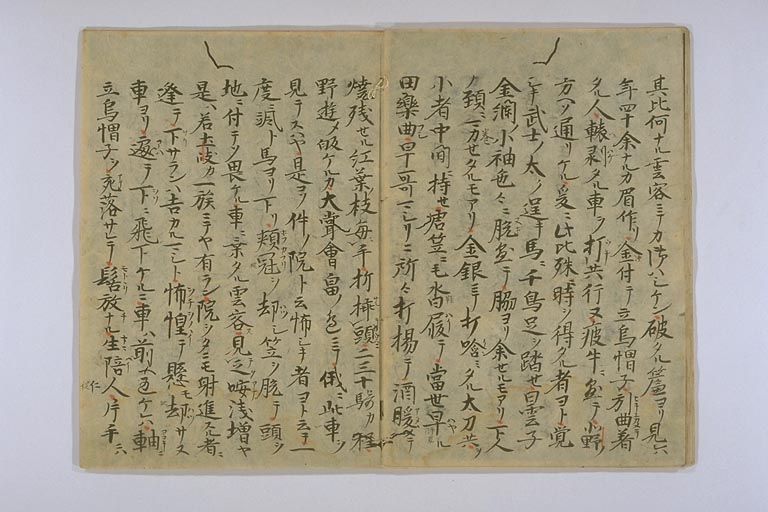 其比何ナル雲客ニテカ御ハシケン破タル簾ヨリ見ハ
年四十余ナルカ眉作リ金付テ立烏帽子引曲着
タル人轅剥タル車ヲ打共行ヌ疲牛ニ テ小野
方ヘソ通リケル爰ニ此比殊ニ時ヲ得タル者ヨト覚
シキ武士ノ太ノ逞キ馬ニ千鳥足ヲ踏セ白雲子
金襴ノ小袖色々ニ脱 テ腸ヨリ余セルモアリ下人
ノ頚ニ巻カセタルモアリ金銀ニテ打 タル太刀共ヲ
小者中間ニ持セ唐笠ニ毛沓履テ當世早ル
田樂曲早哥 所々打揚テ酒暖テ
焼残セル紅葉枝毎手折挿頭二三十騎カ程
野遊メ皈ケルカ大嘗會畠ノ邊ニテ俄ニ此車ヲ
見テスハヤ是ヨソ件ノ院ト云怖シキ者ヨト云テ一
度ニ颯ト馬ヨリ下リ頬冠ヲ却シ笠ヲ脱テ頭ヲ
地ニ付テソ畏ケル車ニ乗タル雲客見之噯浅増ヤ
是ハ若土岐カ一族ニテヤ有ラン院ヲタニモ射進スル者ニ
逢テ下サランハ吉カルマシト怖惶テ懸モ却サス
車ヨリ テ下ニ飛下ケルニ車ハ前ヘ ケレハ軸ニ
立烏帽子ヲ突落サレテ髻放ナル生陪人片手ニハ